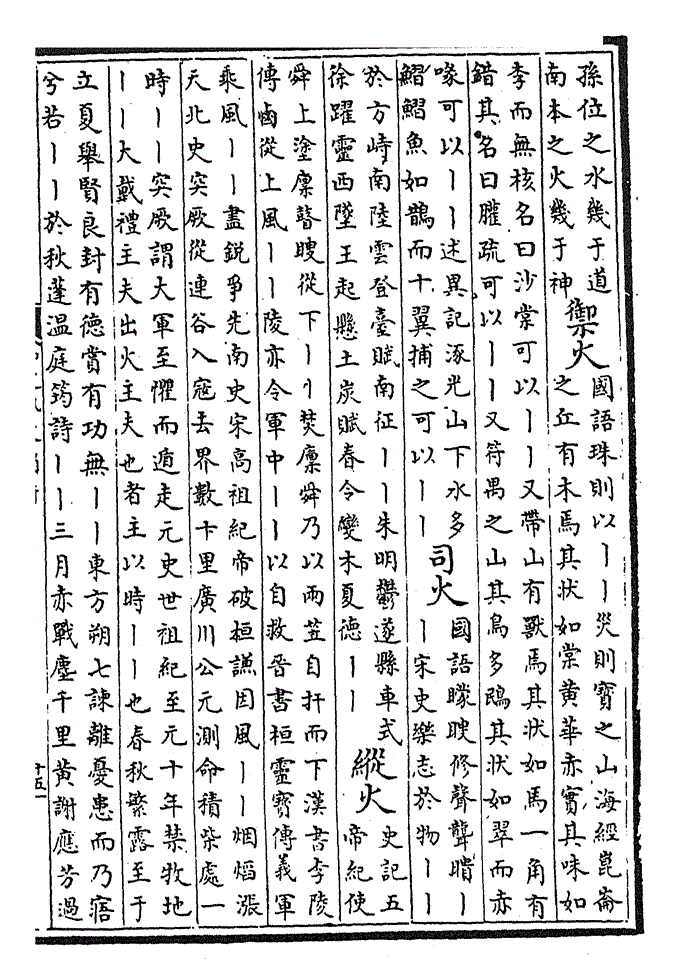 孫位之水幾于道
南本之火幾于神
禦火
國語珠則以丨丨災則寶之山海經崑崙
之丘有木焉其狀如棠黃華赤實其味如
李而無核名曰沙棠可以丨丨又帶山有獸焉其狀如馬一角有
錯其名曰䑏疏可以丨丨又符禺之山其鳥多鴖其狀如翠而赤
喙可以丨丨述異記涿光山下水多
鰼鰼魚如鵲而十翼捕之可以丨丨
司火
國語矇瞍修聲聾聵丨
丨宋史樂志於物丨丨
於方峙南陸雲登臺賦南征丨丨朱明鬱遂縣車式
徐躍靈西墜王起懸土炭賦春令變木夏德丨丨
縱火
史記五
帝紀使
舜上塗廩瞽瞍從下丨丨焚廩舜乃以兩笠自扞而下漢書李陵
傳鹵從上風丨丨陵亦令軍中丨丨以自救晉書桓靈寶傳義軍
乘風丨丨盡銳爭先南史宋高祖紀帝破桓謙因風丨丨烟熖漲
天北史突厥從連谷入寇去界數十里廣川公元測命積柴處一
時丨丨突厥謂大軍至懼而遁走元史世祖紀至元十年禁牧地
丨丨大戴禮主夫出火主夫也者主以時丨丨也春秋繁露至于
立夏舉賢良封有德賞有功無丨丨東方朔七諫離憂患而乃寤
兮若丨丨於秋蓬溫庭筠詩丨丨三月赤戰塵千里黃謝應芳過